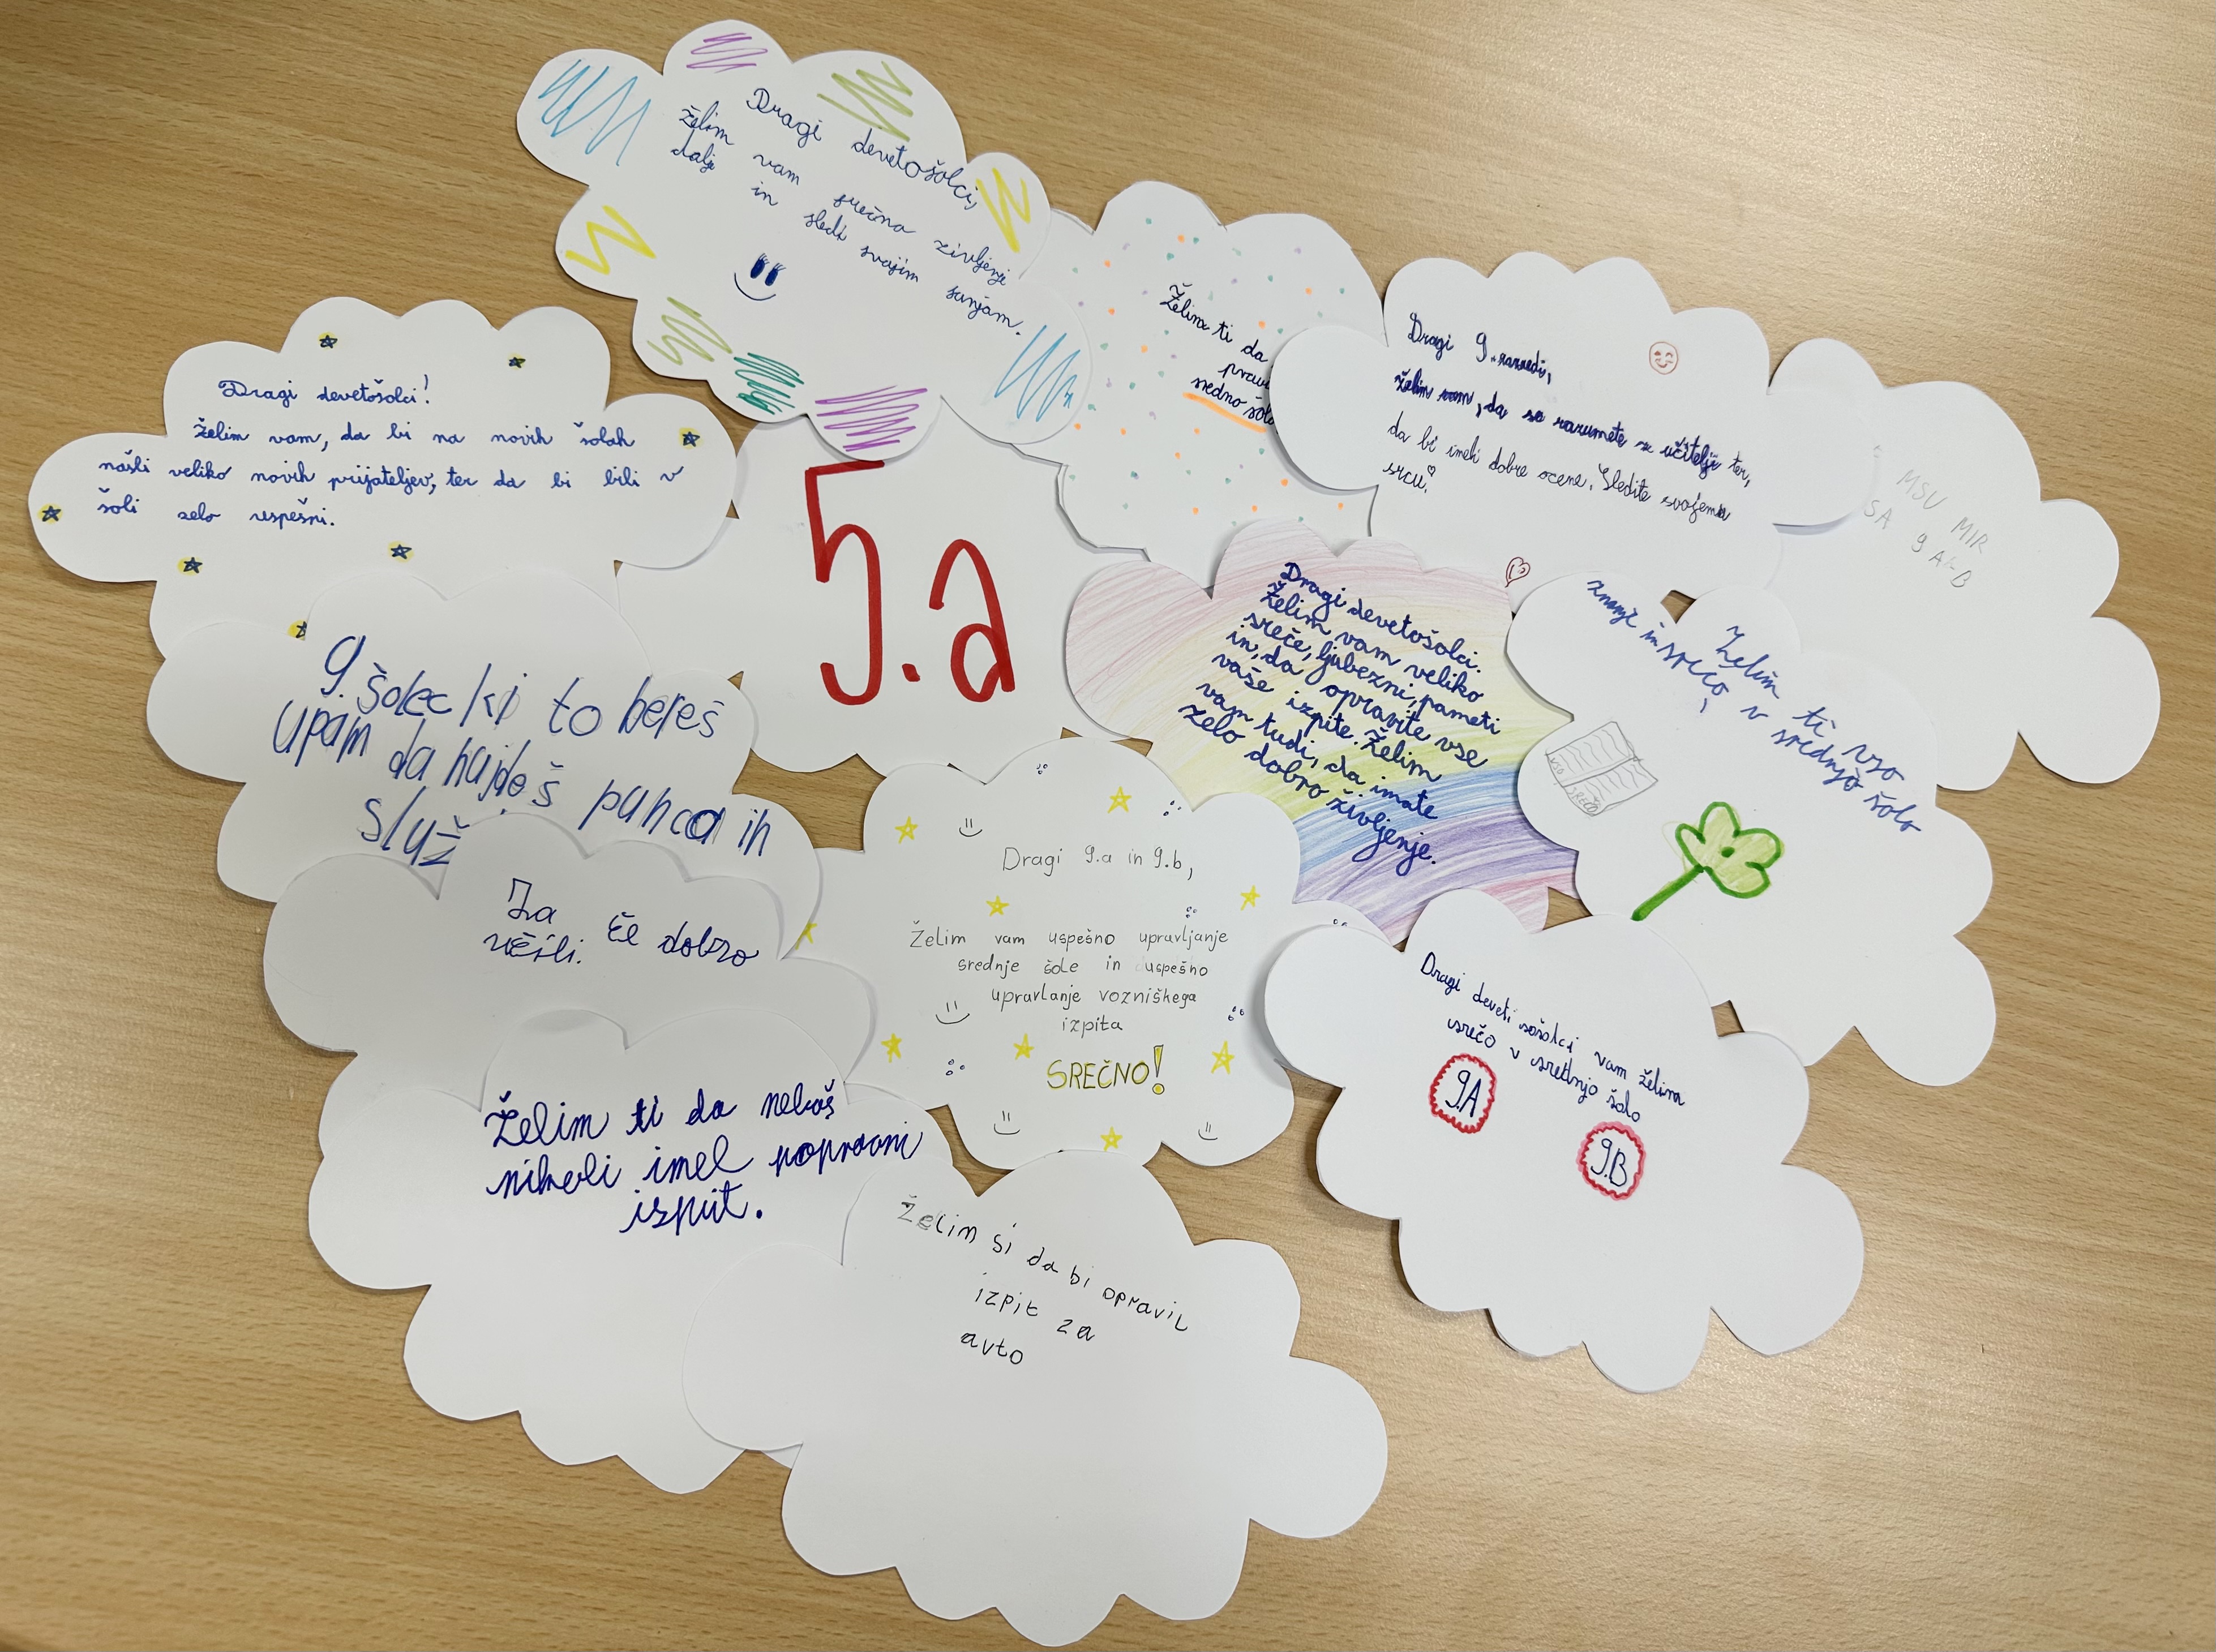 Dragi devetošolci,
želim vam srečno življenje
dalje in sledi svojim sanjam.
Želim ti da
sredno šol
Dragi 9. razredi,
želim vam, da se razumete z učitelji ter,
da bi imeli dobre ocene. Sledite svojemu
srcu.
MSU MIR
SA 9 A-B
Dragi devetošolci!
želim vam, da bi na novih šolah
našli veliko novih prijateljev, ter da bi bili v
šoli zelo uspešni.
5.a
Dragi devetošolci.
Želim vam veliko
sreče, ljubezni, pameti
in, da opravite vse
vaše izpite. Želim
vam tudi, da imate
zelo dobro življenje.
Želim ti vso
znanje in srečo v srednjo šolo
VSO
SREČO
9. šolec ki to bereš
upam da najdeš punco in
služ
Dragi 9.a in 9.b,
Želim vam uspešno upravljanje
srednje šole in uspešno
upravlanje vozniškega
izpita
SREČNO!
Za če dobro
učili.
Dragi deveti sošolci vam želim
srečo v srednjo šolo
9.A
9.B
Želim ti da neboš
nikoli imel popravni
isput.
Želim si da bi opravil
izpit za
avto